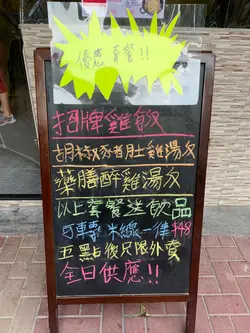 優惠套餐!!
招牌雞飯
胡椒豬肚雞湯反
藥膳醉雞湯反
以上套餐送飲品
可轉米線一律$48
五點後只限外賣
全日供應!!